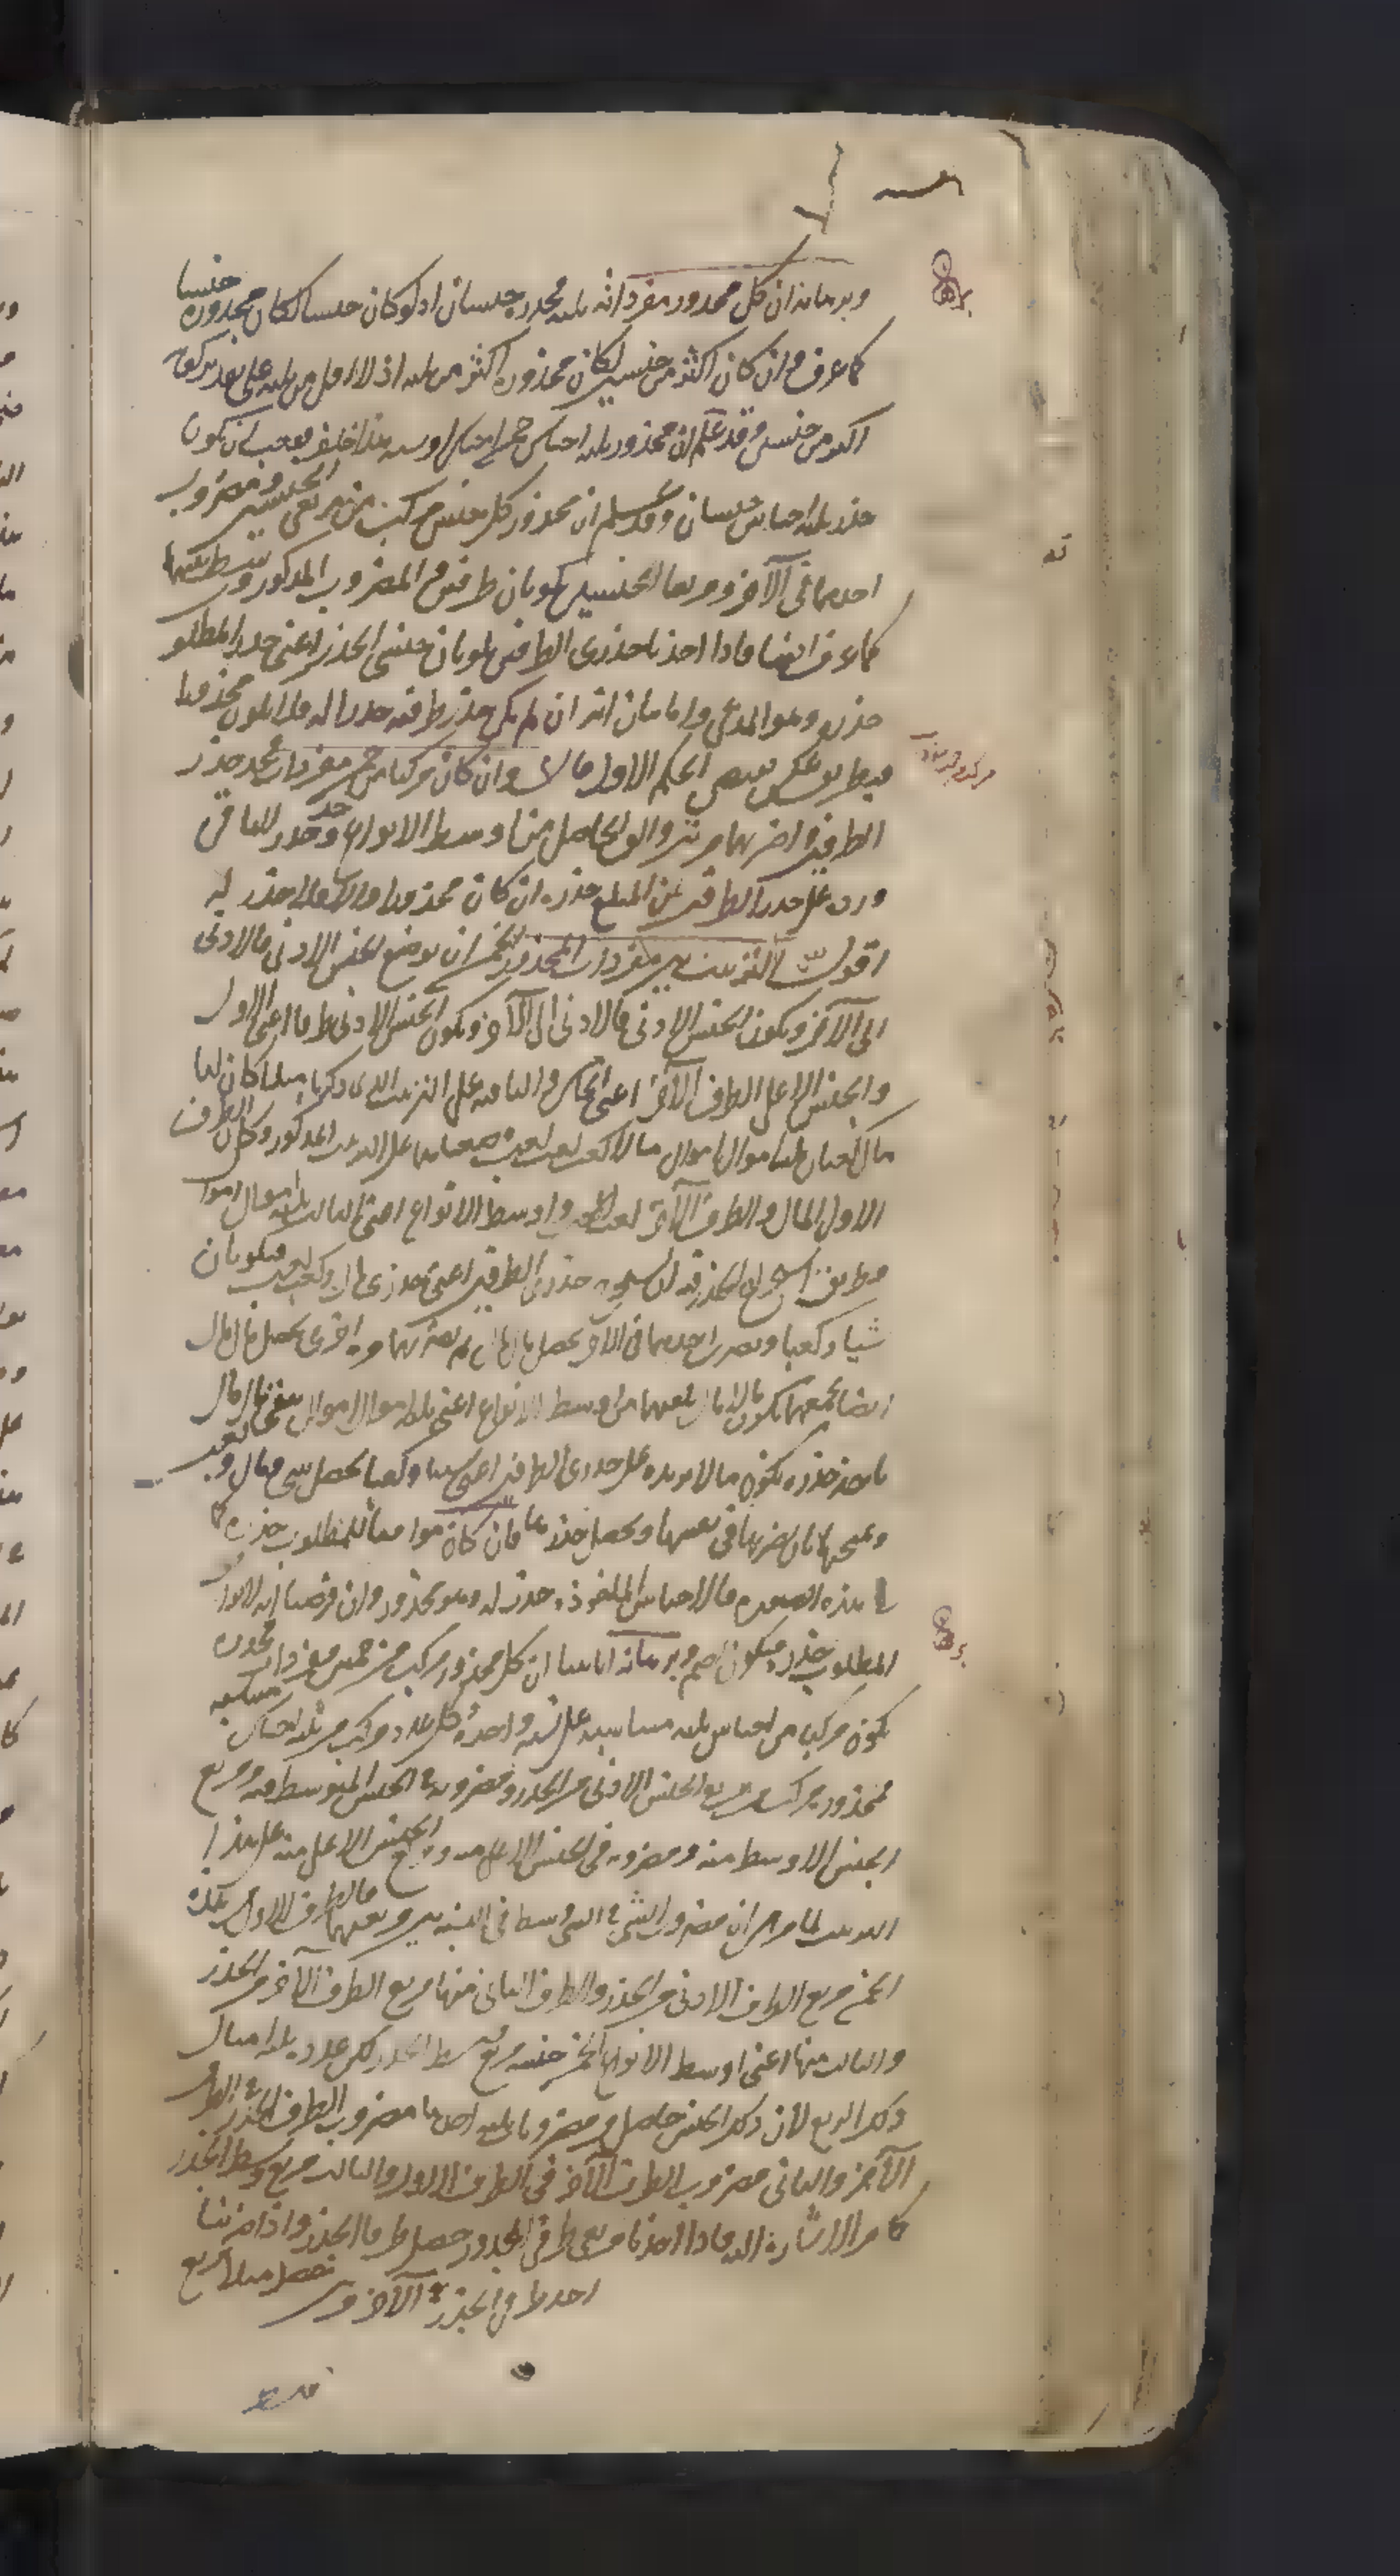 وبرهانه ان كل مجذور مفرداته ثلثة مجذره جنسان اذ لو كان جنسا لكان مجذوره جنسا
كما عرف وان كان اكثر من جنسين لكان مجذوره اكثر من ثلثة اذ لا اقل من ثلثة على تقدير كونه
اكثر من جنسين وقد علم ان مجذور ثلثة اجناس خمسة اجناس او ستة هذا خلف فيجب ان يكون
جذر ثلثة اجناس جنسان وقد علم ان مجذور كل جنس مركب من مربعي الجنسين ومضروب
احدهما في الآخر ومربعا الجنسين يكونان طرفين والمضروب المذكور وسط بينهما
كما عرف ايضا فاذا اخذنا جذرى الطرفين يكونان جنسى الجذر اعنى جذر المطلوب
جذره وهو المدعى واما بيان انه ان لم يكن جذر طرفيه جذرا له فلا يكون مجذورا
فبطريق عكس نقيض الحكم الاول قال وان كان مركبا من خمس مفردات فخذ جذر
الطرفين واضربهما مرتين والق الحاصل من اوسط الانواع وخذ جذر الباقى
وزده على جذر الطرفين فما بلغ جذره ان كان مجذورا والا فلا جذر له
اقول الترتيب بين مفردات المجذور الخمس ان يوضع الجنس الادنى فالادنى
الى الآخر ويكون الجنس الادنى فالادنى الى الآخر ويكون الجنس الادنى طرفا اعنى الاول
والجنس الاعلى الطرف الآخر اعنى الخامس والباقية على الترتيب الذى ذكرنا مثلا كان لنا
مال كعبان ثلثة اموال اموال مالا كعب كعب كعب وضعناها على الترتيب المذكور وكان الطرف
الاول المال والطرف الآخر كعب الكعب واوسط الانواع اعنى الثالث ثلثة اموال اموال
وطريق استخراج الجذر فيه ان نستخرج جذرى الطرفين اعنى جذرى مال وكعب كعب فيكونان
شيئا وكعبا ونضرب احدهما في الآخر يحصل مال مال ثم نضربهما مرة اخرى يحصل مال مال
ايضا نجمعهما يكون مالا مال نلقيهما من اوسط الانواع اعنى ثلثة اموال اموال يبقى مال مال
ناخذ جذره يكون مالا نزيده على جذرى الطرفين اعنى شيئا وكعبا يحصل شىء ومال وكعب
ونمتحنها بان نضربها في نفسها ويحصل مجذورها فان كان موافقا للمطلوب جذره كما
فى هذه الصورة فالاجناس الماخوذة جذر له وهو مجذور وان فرضنا انه لا يوافق
المطلوب جذره فيكون اصم وبرهانه انا بينا ان كل مجذور مركب من خمس مفردات مجذوره
يكون مركبا من اجناس ثلثة متناسبة على نسبة واحدة وكل عدد مركب من ثلثة اجناس متناسبة
فمجذوره مركب من مربع الجنس الادنى من الجذر ومضروبه فى الجنس المتوسط منه ومربع
الجنس الاوسط منه ومضروبه في الجنس الاعلى منه ومربع الجنس الاعلى منه على هذا
الترتيب لما مر من ان مضروب الشىء فى الشىء وسط في النسبة بين مربعيهما فالطرف الاول من هذه
الخمس مربع الطرف الادنى من الجذر والطرف الثانى منها مربع الطرف الآخر من الجذر
والثالث منها اعنى اوسط الانواع الخمس جنسه مربع وسط الجذر لكن عدده ثلثة امثال
ذلك المربع لان ذلك الجنس حاصل من مضروبات ثلثة احدها مضروب الطرف الجذر في الطرف
الآخر والثانى مضروب الطرف الآخر في الطرف الاول والثالث مربع وسط الجذر
كما مر الاشارة اليه فاذا اخذنا مربعى طرفى المجذور حصل طرفا الجذر واذا ضربنا
احد طرفى الجذر فى الآخر مرتين تحصل مثلا مربع